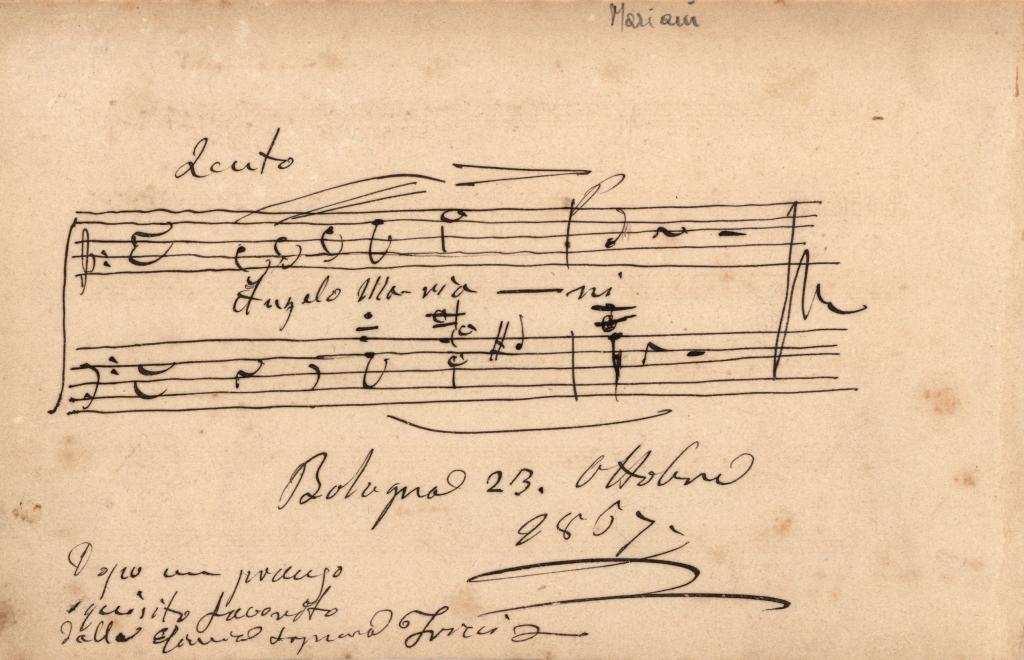 Mariani
Lento
P
Angelo Maria — ni
Bologna 23. Ottobre
1867.
Dopo un pranzo
squisito favorito
dalla Signora